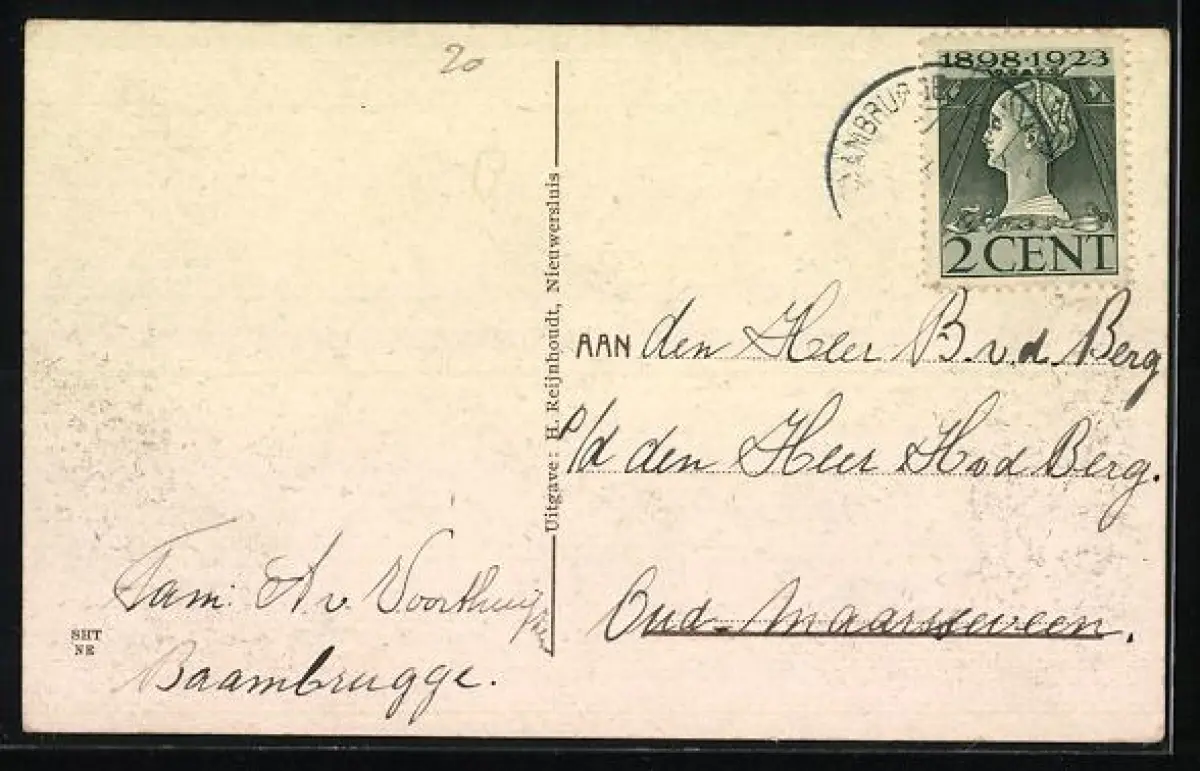 20
1898·1923
2 CENT
AAN den Heer B. v. d. Berg
p/d den Heer H v d Berg.
Oud-Maarsseveen.
Uitgave: H. Reijnhoudt, Nieuwersluis
Fam: A v. Voorthuijzen
Baambrugge.
SHT
NE